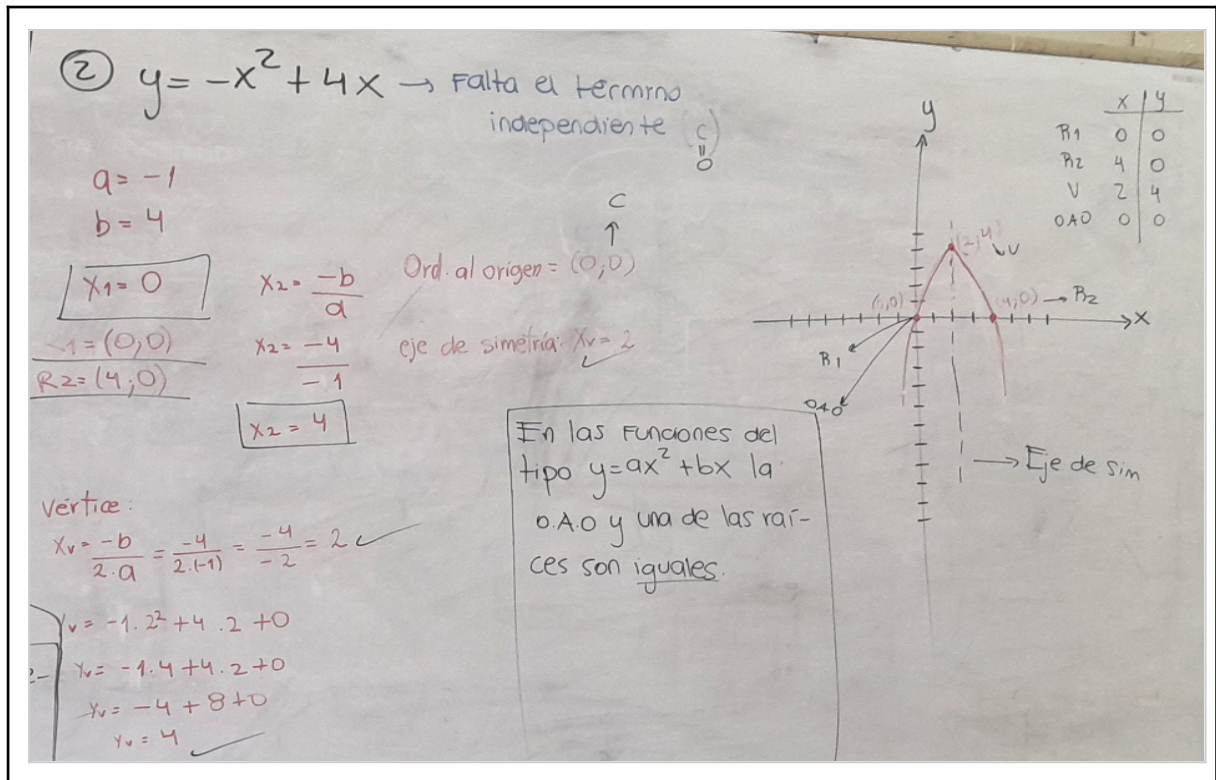 ② y = -x² + 4x → Falta el termino
independiente (C = 0)
a = -1
b = 4
X1 = 0
R1 = (0;0)
R2 = (4;0)
X2 = -b/a
X2 = -4/-1
X2 = 4
C
↑
Ord. al origen = (0;0)
eje de simetría: Xv = 2
vértice:
Xv = -b/2·a = -4/2·(-1) = -4/-2 = 2
Yv = -1·2² + 4·2 + 0
Yv = -1·4 + 4·2 + 0
Yv = -4 + 8 + 0
Yv = 4
En las Funciones del
tipo y=ax² + bx la
O.A.O y una de las raí-
ces son iguales.
y
(2;4) V
(0;0)
(4;0) → R2
x
R1
OAO
→ Eje de sim
x | y
R1 0 | 0
R2 4 | 0
V 2 | 4
OAO 0 | 0